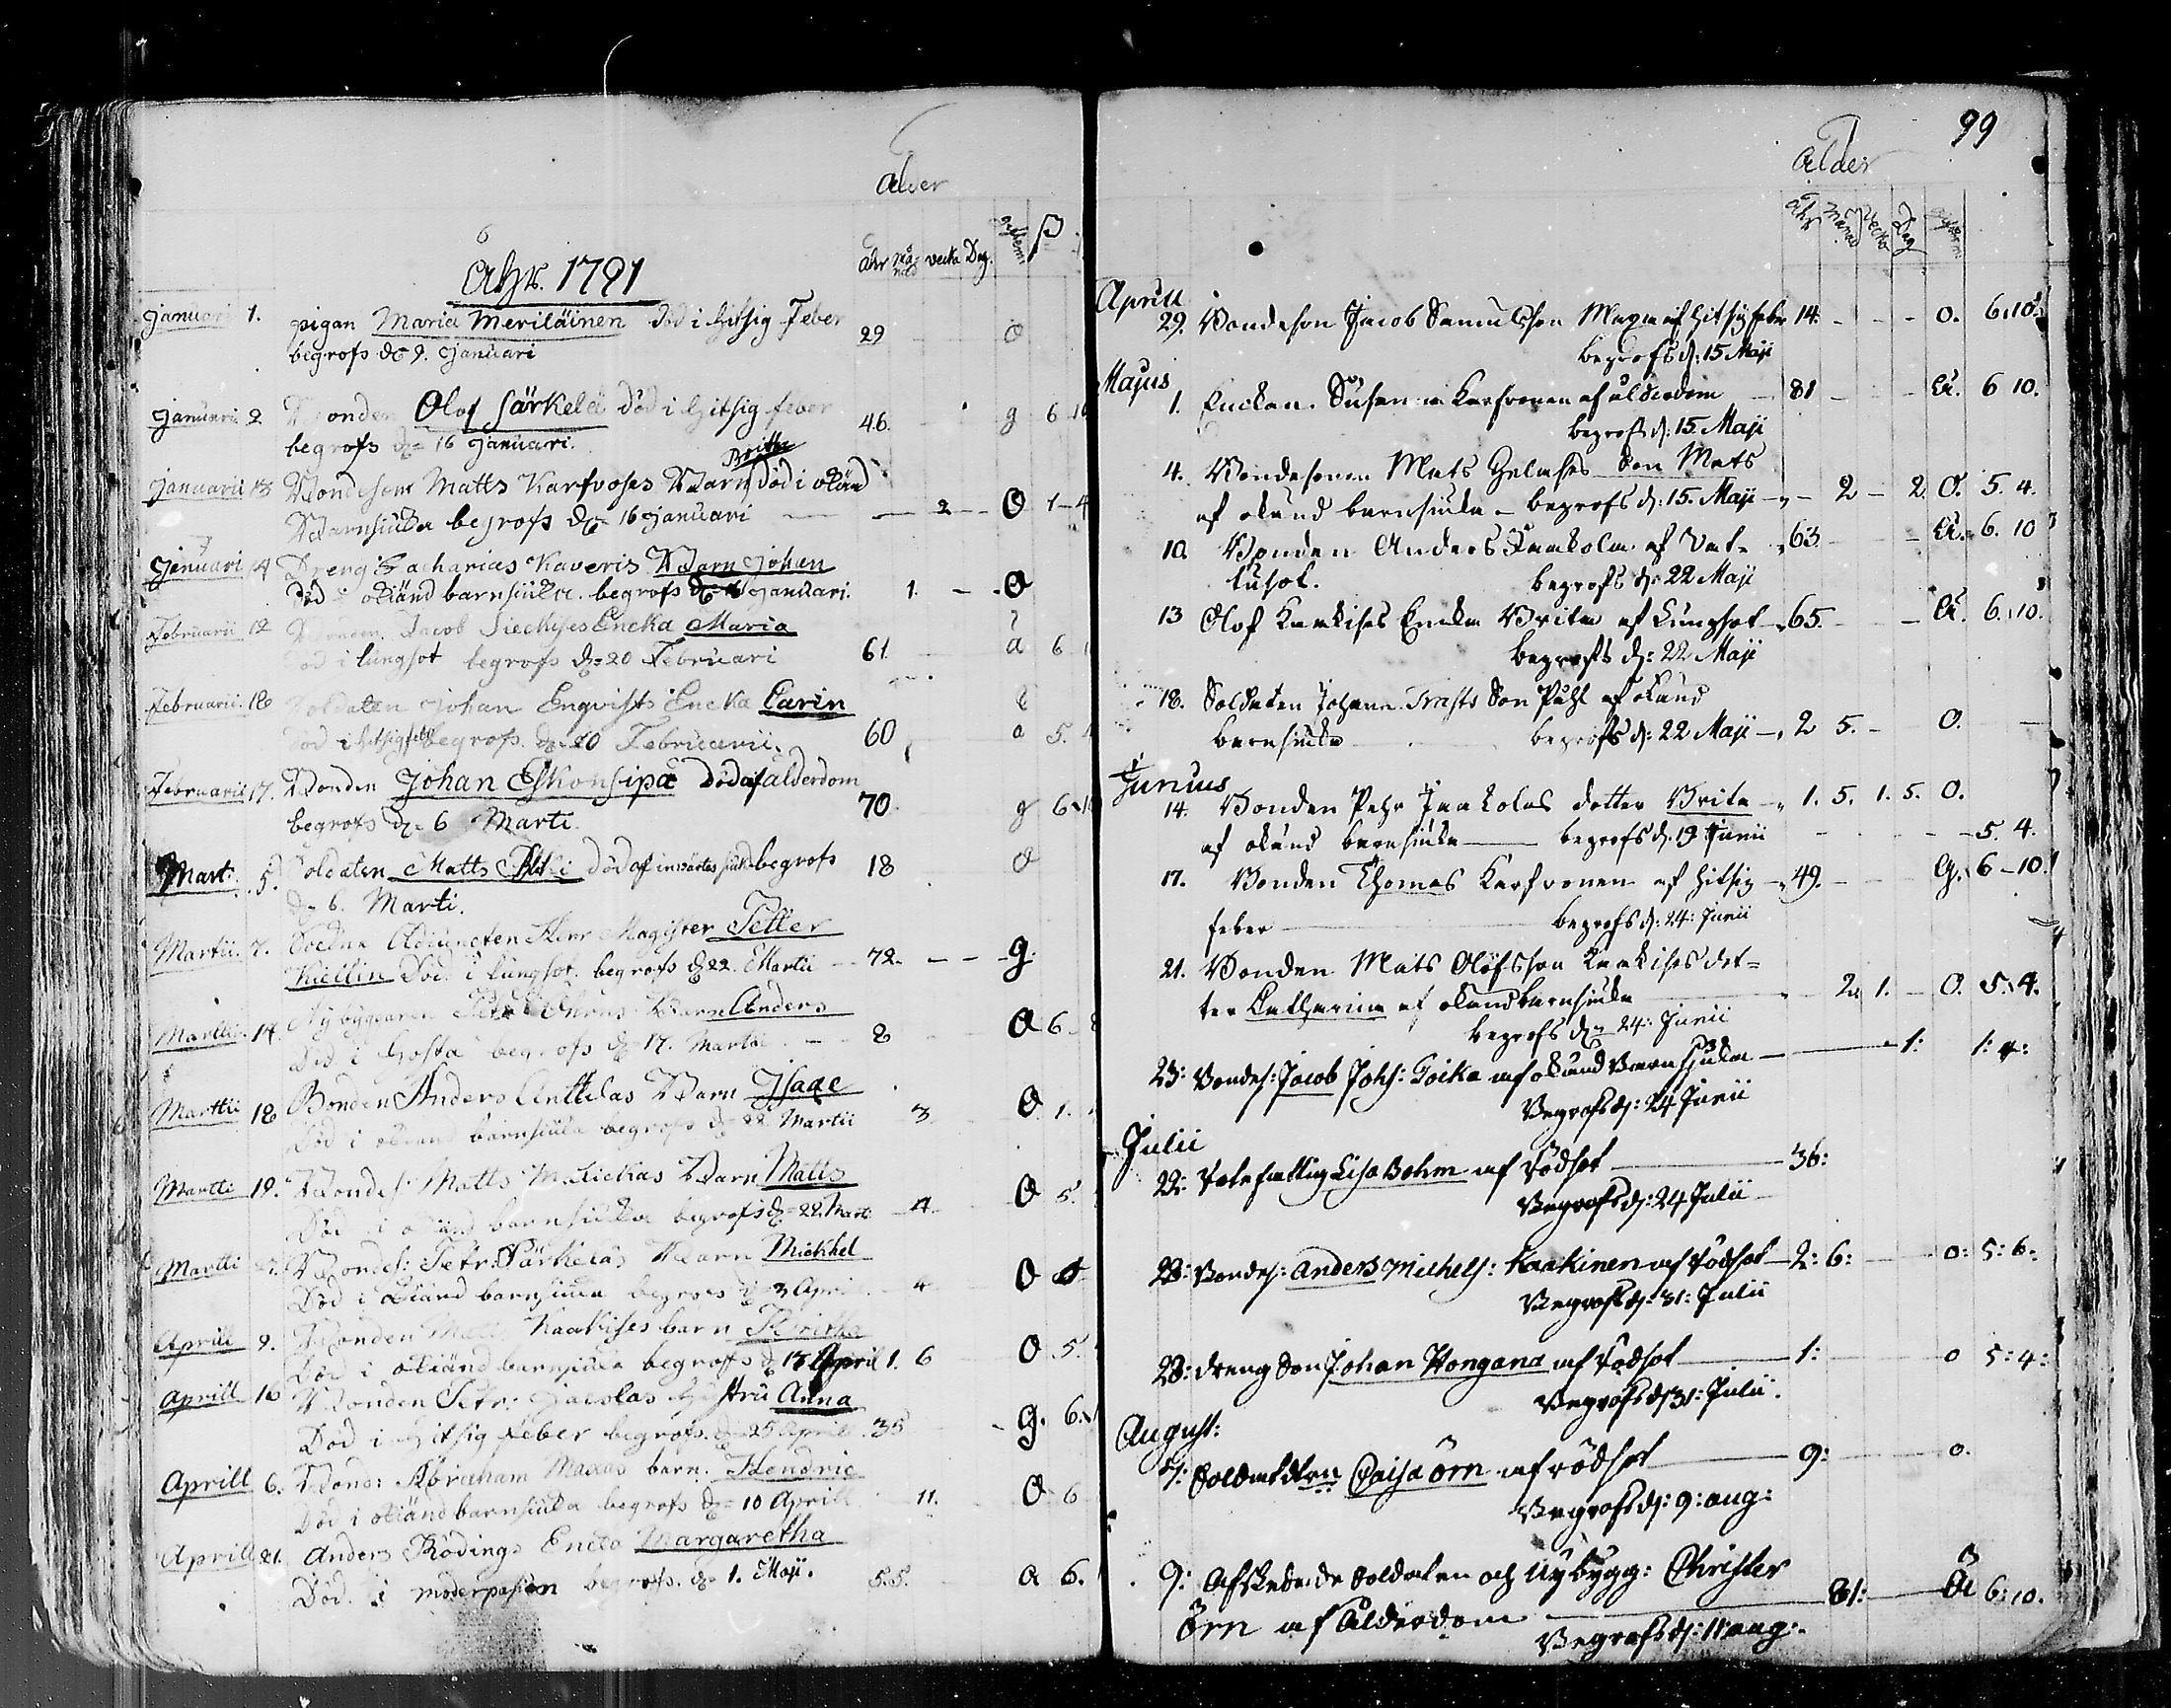 Alder
Ahr Månad vecka Dag.
Ahr. 1791
Januari 1. pigan Maria Meriläinen död i hitsig Feber 29 O
begrofs d 9. Januari
Januari 2 Bonden Olof Särkelä död i hitsig feber 46. g 6 10
begrofs d 16 Januari.
Britha
Januarii 13 Bondesons Matts Karfvoses Barn död i okänd
Barnsiuka begrofs d 16 Januari 2 O 1-4
Januari 14 Dreng Zacharias Kaveris Barn Johan
Död i okiänd barnsiuka. begrofs d 16 Januari. 1. O
Februarii 12 Bonden Jacob Siechises Encka Maria
Död i lungsot begrofs d 20 Februari 61 a 6
Februarii. 18 Soldaten Johan Enqvists Encka Carin
Död i hitsig feber begrofs d 20 Februarii. 60 a 5.
Februarii 17. Bonden Johan Eskonsipa död af ålderdom 70. g 6.10
begrofs d 6 Marti.
Mart. 5. Soldaten Matts död af invärtes siuk begrofs 18 O
d 6. Marti.
Martii. 7. Adiuncten Herr Magister Petter
Kiellin Död i lungsot. begrofs d 22. Martii 72. g.
Marttii. 14. Nybyggaren Barn Anders
Död i hosta begrofs d 17. Martii 8 O 6
Marttii 18 Bonden Anders Anttilas Barn Isaac
Död i okiänd barnsiuka begrofs d 22 Martii 3 O 1.
Martti 19. Bondes: Matts Barn Matts
Död i okiänd barnsiuka begrofs d 22. Mart 4 O 5.
Martti Bondes: Petr: Särkeläs Barn Mickhel
Död i okiänd barnsiuka begrofs d 3 April 4 O
Aprill 9. Bonden Matts Kaakises barn
Död i okiänd barnsiuka begrofs d 13 April 1. 6 O 5.
Aprill 16 Bonden Petr: Jacolas hustru Anna
Död i hitsig feber begrofs. d 25 April 35 g. 6.
Aprill 6. Bond: Abraham Maxas barn. Hendric
Död i okiänd barnsiuka begrofs d 10 Aprill 11. O 6
Aprill 21. Anders Rödings Encka Margaretha
Död i moderpasion begrofs. d 1. Maji. 55. a 6.
99
Alder
Ahr Månad Vecka Dag
Aprill
29. Bondeson Jacob Samulsson Maxa af hitsig feber 14. O. 6.10.
begrofs d: 15 Maji
Majus
1. Enckan Susanna Karfvonen af ålderdom 81 Ä. 6 10.
begrofs d: 15 Maji
4. Bondesonen Mats Son Mats
af okänd barnsiuka begrofs d: 15. Maji 2 2 O. 5. 4.
10. Bonden Anders Jaakola af Vat- 63. Ä. 6. 10
tusot. begrofs d: 22 Maji
13 Olof Kaakises Encka Brita af Lungsot 65. Ä. 6.10.
begrofs d: 22 Maji
18. Soldaten Johann Son Påhl af okänd
barnsiuka begrofs d: 22 Maji 2 5. O.
Junius
14. Bonden Pehr Jaakolas dotter Brita 1. 5. 1. 5. O.
af okänd barnsiuka begrofs d. 19 Junii 5. 4.
17. Bonden Thomas Karfvonen af hitsig 49. G. 6-10.
feber begrofs d: 24: Junii
21. Bonden Mats Olofsson Kaakises dot=
ter Catharina af okänd barnsiuka 2. 1. O. 5. 4.
begrofs d 24: Junii
23: Bondes: Jacob Johs: Toika af okänd Barnsjuka 1: 1: 4:
Begrofs d: 24 Junii
Julii
22: Lisa Bohm af Rödsot 36:
Begrofs d: 24 Julii
28: Bondes: Anders Michels: Kaakinen af Rödsot 2: 6: O: 5: 6:
Begrofs d: 31: Julii
28: dreng Son Johan Hongana af Rödsot 1: O 5: 4:
Begrofs d 31: Julii.
August:
7: Soldatdtren Caisa Örn af rödsot 9: O.
Begrofs d: 9: aug:
9: Afskedade Soldaten och Nybygg: Christer
Örn af Ålderdom 81: Ä 6: 10.
Begrofs d: 11 aug: